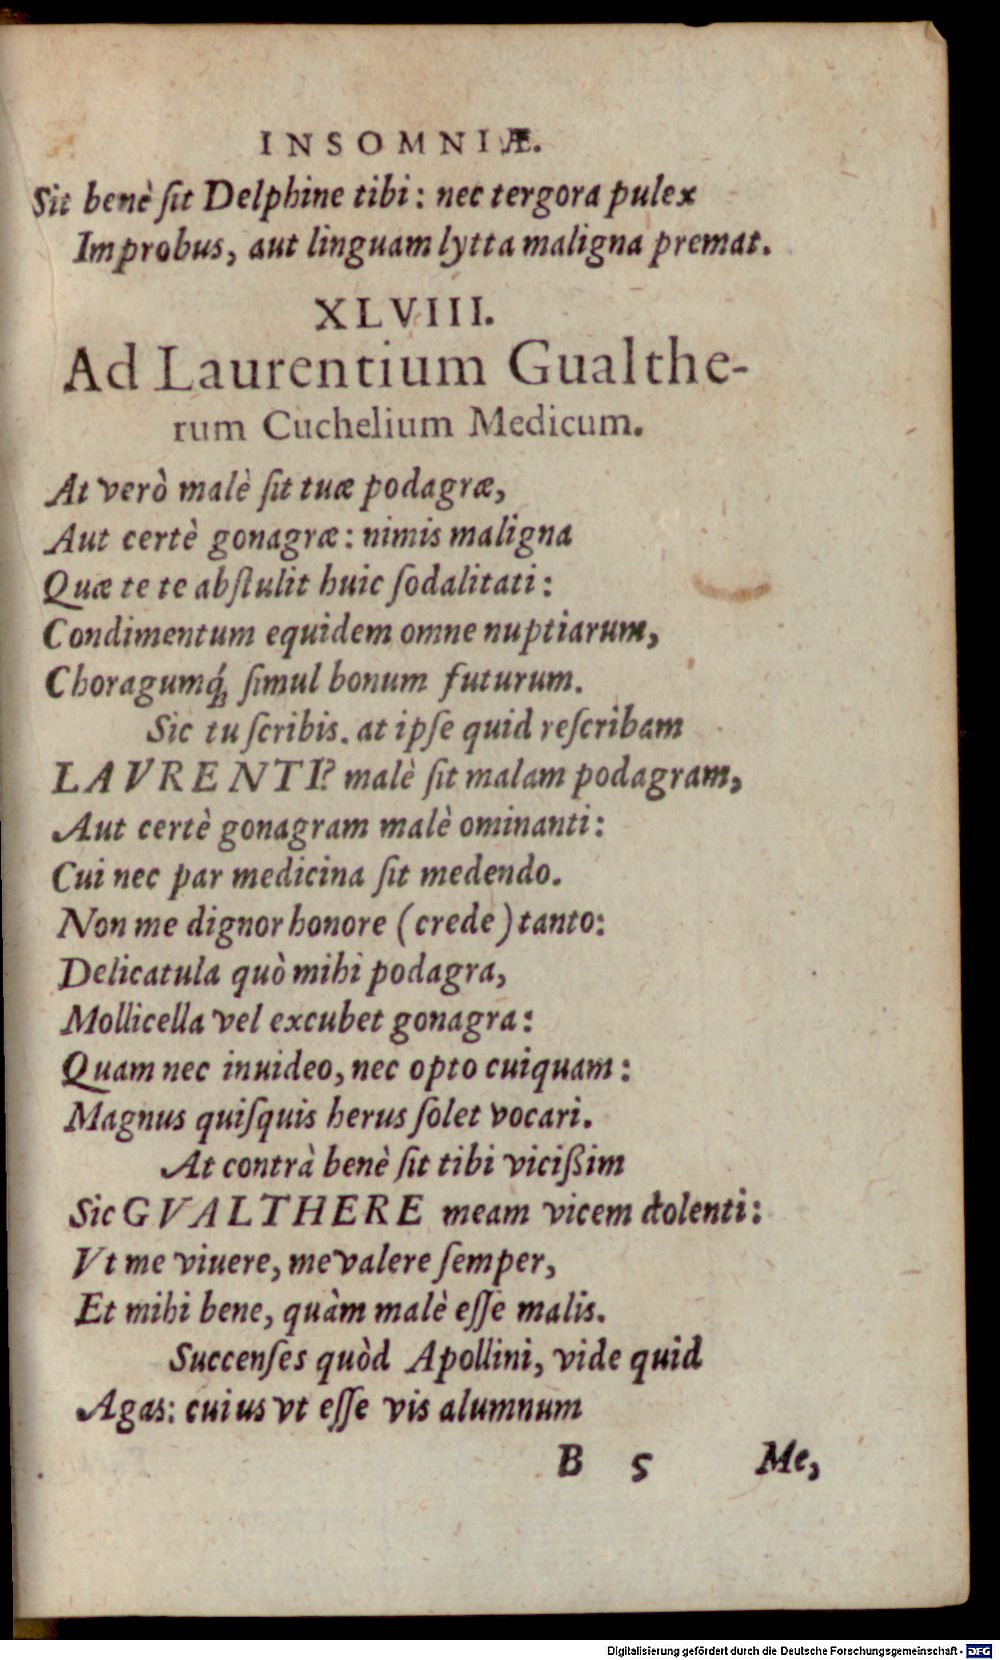 INSOMNIÆ.
Sit benè ſit Delphine tibi: nec tergora pulex
Improbus, aut linguam lytta maligna premat.
XLVIII.
Ad Laurentium Gualthe-
rum Cuchelium Medicum.
At verò malè ſit tuæ podagræ,
Aut certè gonagræ: nimis maligna
Quæ te te abſtulit huic ſodalitati:
Condimentum equidem omne nuptiarum,
Choragumq́; ſimul bonum futurum.
Sic tu ſcribis. at ipſe quid reſcribam
LAVRENTI? malè ſit malam podagram,
Aut certè gonagram malè ominanti:
Cui nec par medicina ſit medendo.
Non me dignor honore (crede) tanto:
Delicatula quò mihi podagra,
Mollicella vel excubet gonagra:
Quam nec inuideo, nec opto cuiquam:
Magnus quiſquis herus ſolet vocari.
At contrà benè ſit tibi vicißim
Sic GVALTHERE meam vicem dolenti:
Vt me viuere, me valere ſemper,
Et mihi bene, quàm malè eſſe malis.
Succenſes quòd Apollini, vide quid
Agas: cuius vt eſſe vis alumnum
B 5 Me,
Digitalisierung gefördert durch die Deutsche Forschungsgemeinschaft - DFG